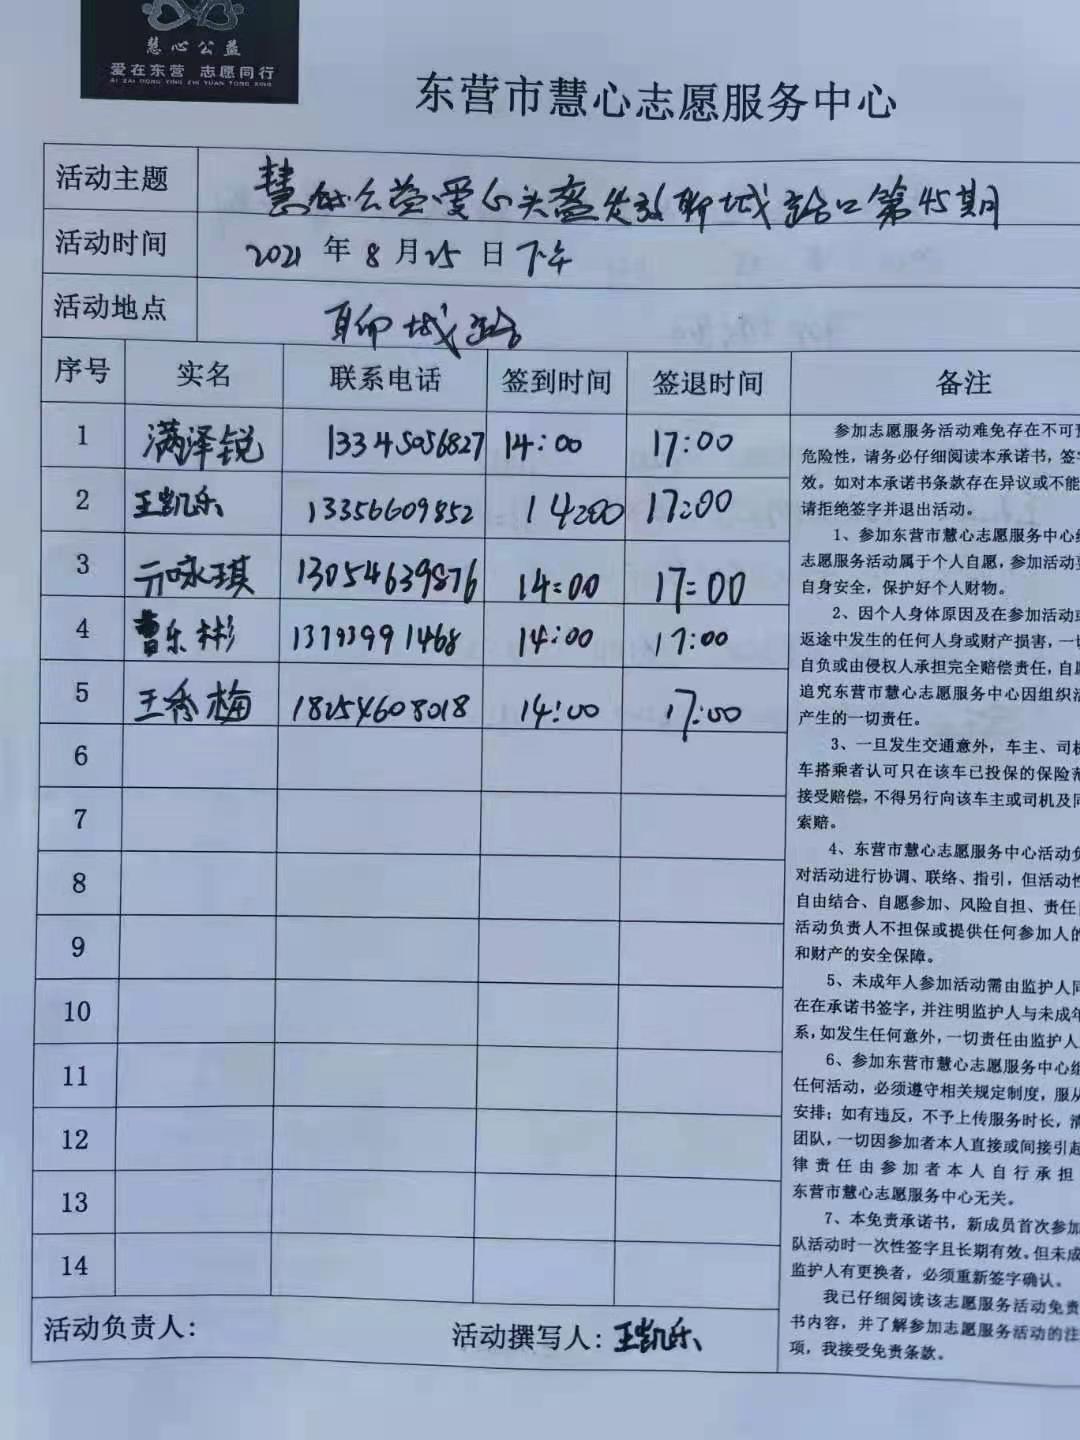 慧心公益
爱在东营 志愿同行
AI ZAI DONG YING ZHI YUAN TONG XING
东营市慧心志愿服务中心
活动主题 慧心公益爱心头盔发放聊城路口第45期
活动时间 2021年8月25日下午
活动地点 聊城路
序号 实名 联系电话 签到时间 签退时间 备注
1 满泽锐 13345056827 14:00 17:00
2 王凯乐 13356609852 14:00 17:00
3 亓咏琪 13054639876 14:00 17:00
4 曹乐彬 13793991468 14:00 17:00
5 王秀梅 18254608018 14:00 17:00
6
7
8
9
10
11
12
13
14
参加志愿服务活动难免存在不可预
危险性，请务必仔细阅读本承诺书，签字
效。如对本承诺书条款存在异议或不能
请拒绝签字并退出活动。
1、参加东营市慧心志愿服务中心组
志愿服务活动属于个人自愿，参加活动要
自身安全，保护好个人财物。
2、因个人身体原因及在参加活动或
返途中发生的任何人身或财产损害，一切
自负或由侵权人承担完全赔偿责任，自愿
追究东营市慧心志愿服务中心因组织活
产生的一切责任。
3、一旦发生交通意外，车主、司机
车搭乘者认可只在该车已投保的保险范
接受赔偿，不得另行向该车主或司机及同
索赔。
4、东营市慧心志愿服务中心活动负
对活动进行协调、联络、指引，但活动性
自由结合、自愿参加、风险自担、责任自
活动负责人不担保或提供任何参加人的
和财产的安全保障。
5、未成年人参加活动需由监护人同
在在承诺书签字，并注明监护人与未成年
系，如发生任何意外，一切责任由监护人
6、参加东营市慧心志愿服务中心组
任何活动，必须遵守相关规定制度，服从
安排；如有违反，不予上传服务时长，清
团队，一切因参加者本人直接或间接引起
律责任由参加者本人自行承担
东营市慧心志愿服务中心无关。
7、本免责承诺书，新成员首次参加
队活动时一次性签字且长期有效。但未成
监护人有更换者，必须重新签字确认。
我已仔细阅读该志愿服务活动免责
书内容，并了解参加志愿服务活动的注
项，我接受免责条款。
活动负责人： 活动撰写人：王凯乐